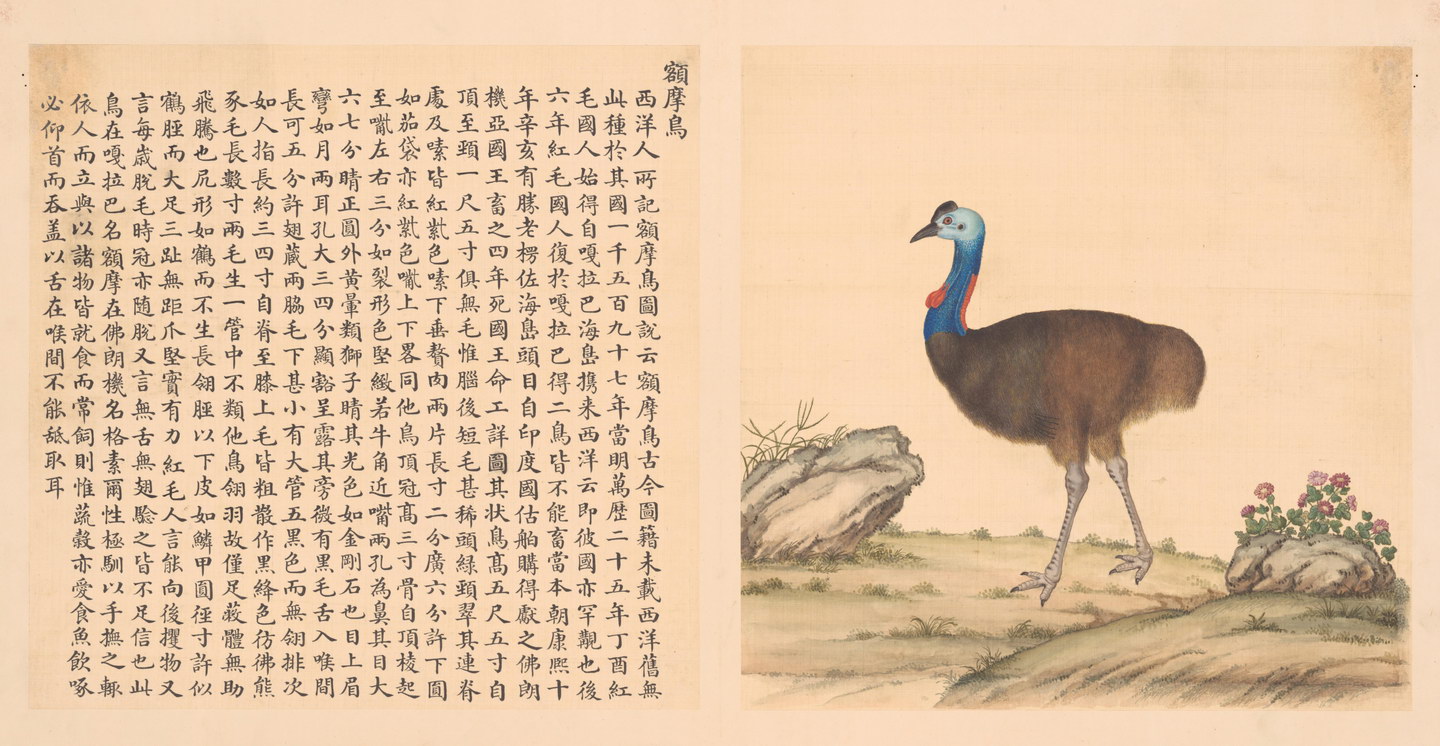 額摩鳥
西洋人所記額摩鳥圖說云額摩鳥古今圖籍未載西洋舊無
此種於其國一千五百九十七年當明萬歷二十五年丁酉紅
毛國人始得自嘎拉巴海島攜来西洋云即彼國亦罕觀也後
六年紅毛國人復於嘎拉巴得二鳥皆不能畜當本朝康熙十
年辛亥有勝老楞佐海島頭目自印度國估舶購得獻之佛朗
機亞國王畜之四年死國王命工詳圖其状鳥高五尺五寸自
頂至頸一尺五寸俱無毛惟腦後短毛甚稀頭緑頸翠其連脊
處及嗉皆紅紫色嗉下垂贅肉兩片長寸二分廣六分許下圓
如茄袋亦紅紫色嘴上下畧同他鳥頂冠高三寸骨自頂棱起
至嘴左右三分如裂形色堅緻若牛角近嘴兩孔為鼻其目大
六七分睛正圓外黄暈類獅子睛其光色如金剛石也目上眉
彎如月兩耳孔大三四分顯豁呈露其旁微有黒毛舌入喉間
長可五分許翅蔵兩脇毛下甚小有大管五黒色而無翎排次
如人指長約三四寸自脊至膝上毛皆粗散作黒絳色彷彿熊
豕毛長數寸兩毛生一管中不類他鳥翎羽故僅足蔽體無助
飛騰也尻形如鶴而不生長翎脛以下皮如鱗甲圓徑寸許似
鶴脛而大足三趾無距爪堅實有力紅毛人言能向後攫物又
言每歳脱毛時冠亦随脱又言無舌無翅驗之皆不足信也此
鳥在嘎拉巴名額摩在佛朗機名格素爾性極馴以手撫之輙
依人而立與以諸物皆就食而常飼則惟蔬穀亦愛食魚飲啄
必仰首而吞盖以舌在喉間不能舐取耳